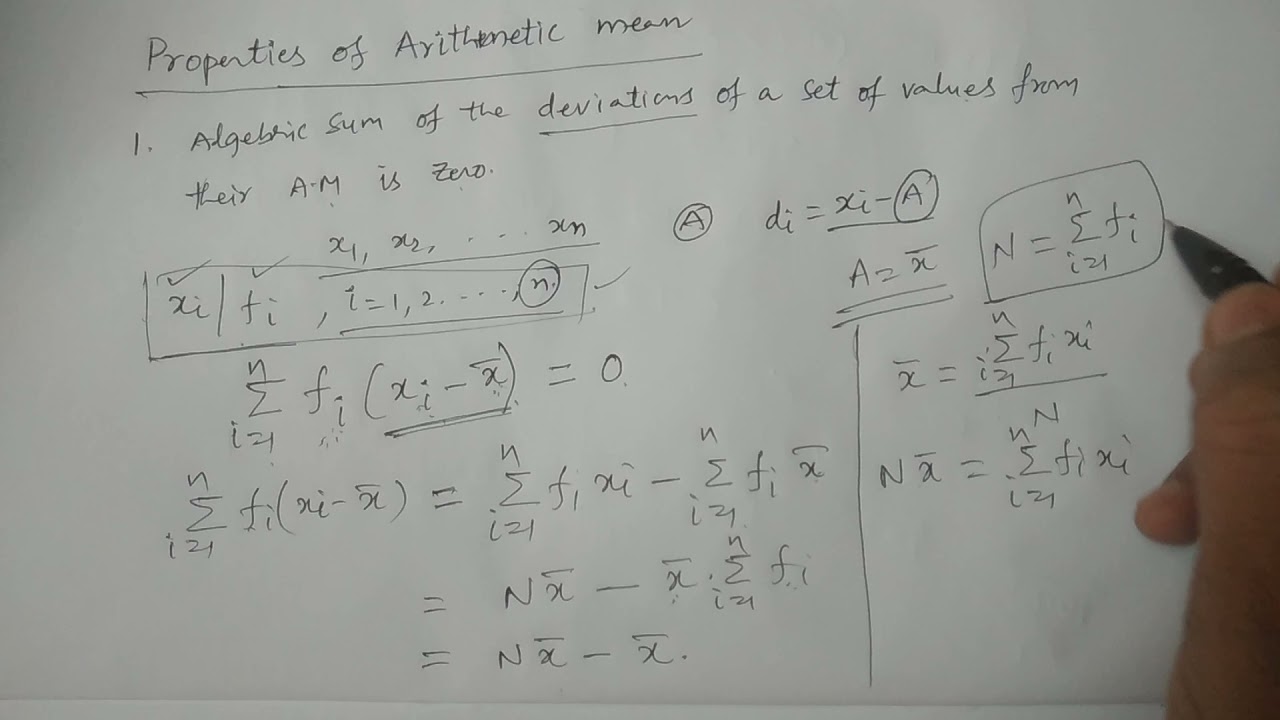 Properties of Arithmetic mean
1. Algebric sum of the deviations of a set of values from
their A.M is zero.
x₁, x₂, . . . xₙ
Ⓐ dᵢ = xᵢ – A
A = x̄
N = ∑ᵢ₌₁ⁿ fᵢ
xᵢ | fᵢ , i = 1, 2 . . . . , n.
∑ᵢ₌₁ⁿ fᵢ (xᵢ – x̄) = 0.
x̄ = ∑ᵢ₌₁ⁿ fᵢ xᵢ / N
∑ᵢ₌₁ⁿ fᵢ(xᵢ – x̄) = ∑ᵢ₌₁ⁿ fᵢ xᵢ – ∑ᵢ₌₁ⁿ fᵢ x̄
N x̄ = ∑ᵢ₌₁ⁿ fᵢ xᵢ
= N x̄ – x̄ . ∑ᵢ₌₁ⁿ fᵢ
= N x̄ – x̄ .